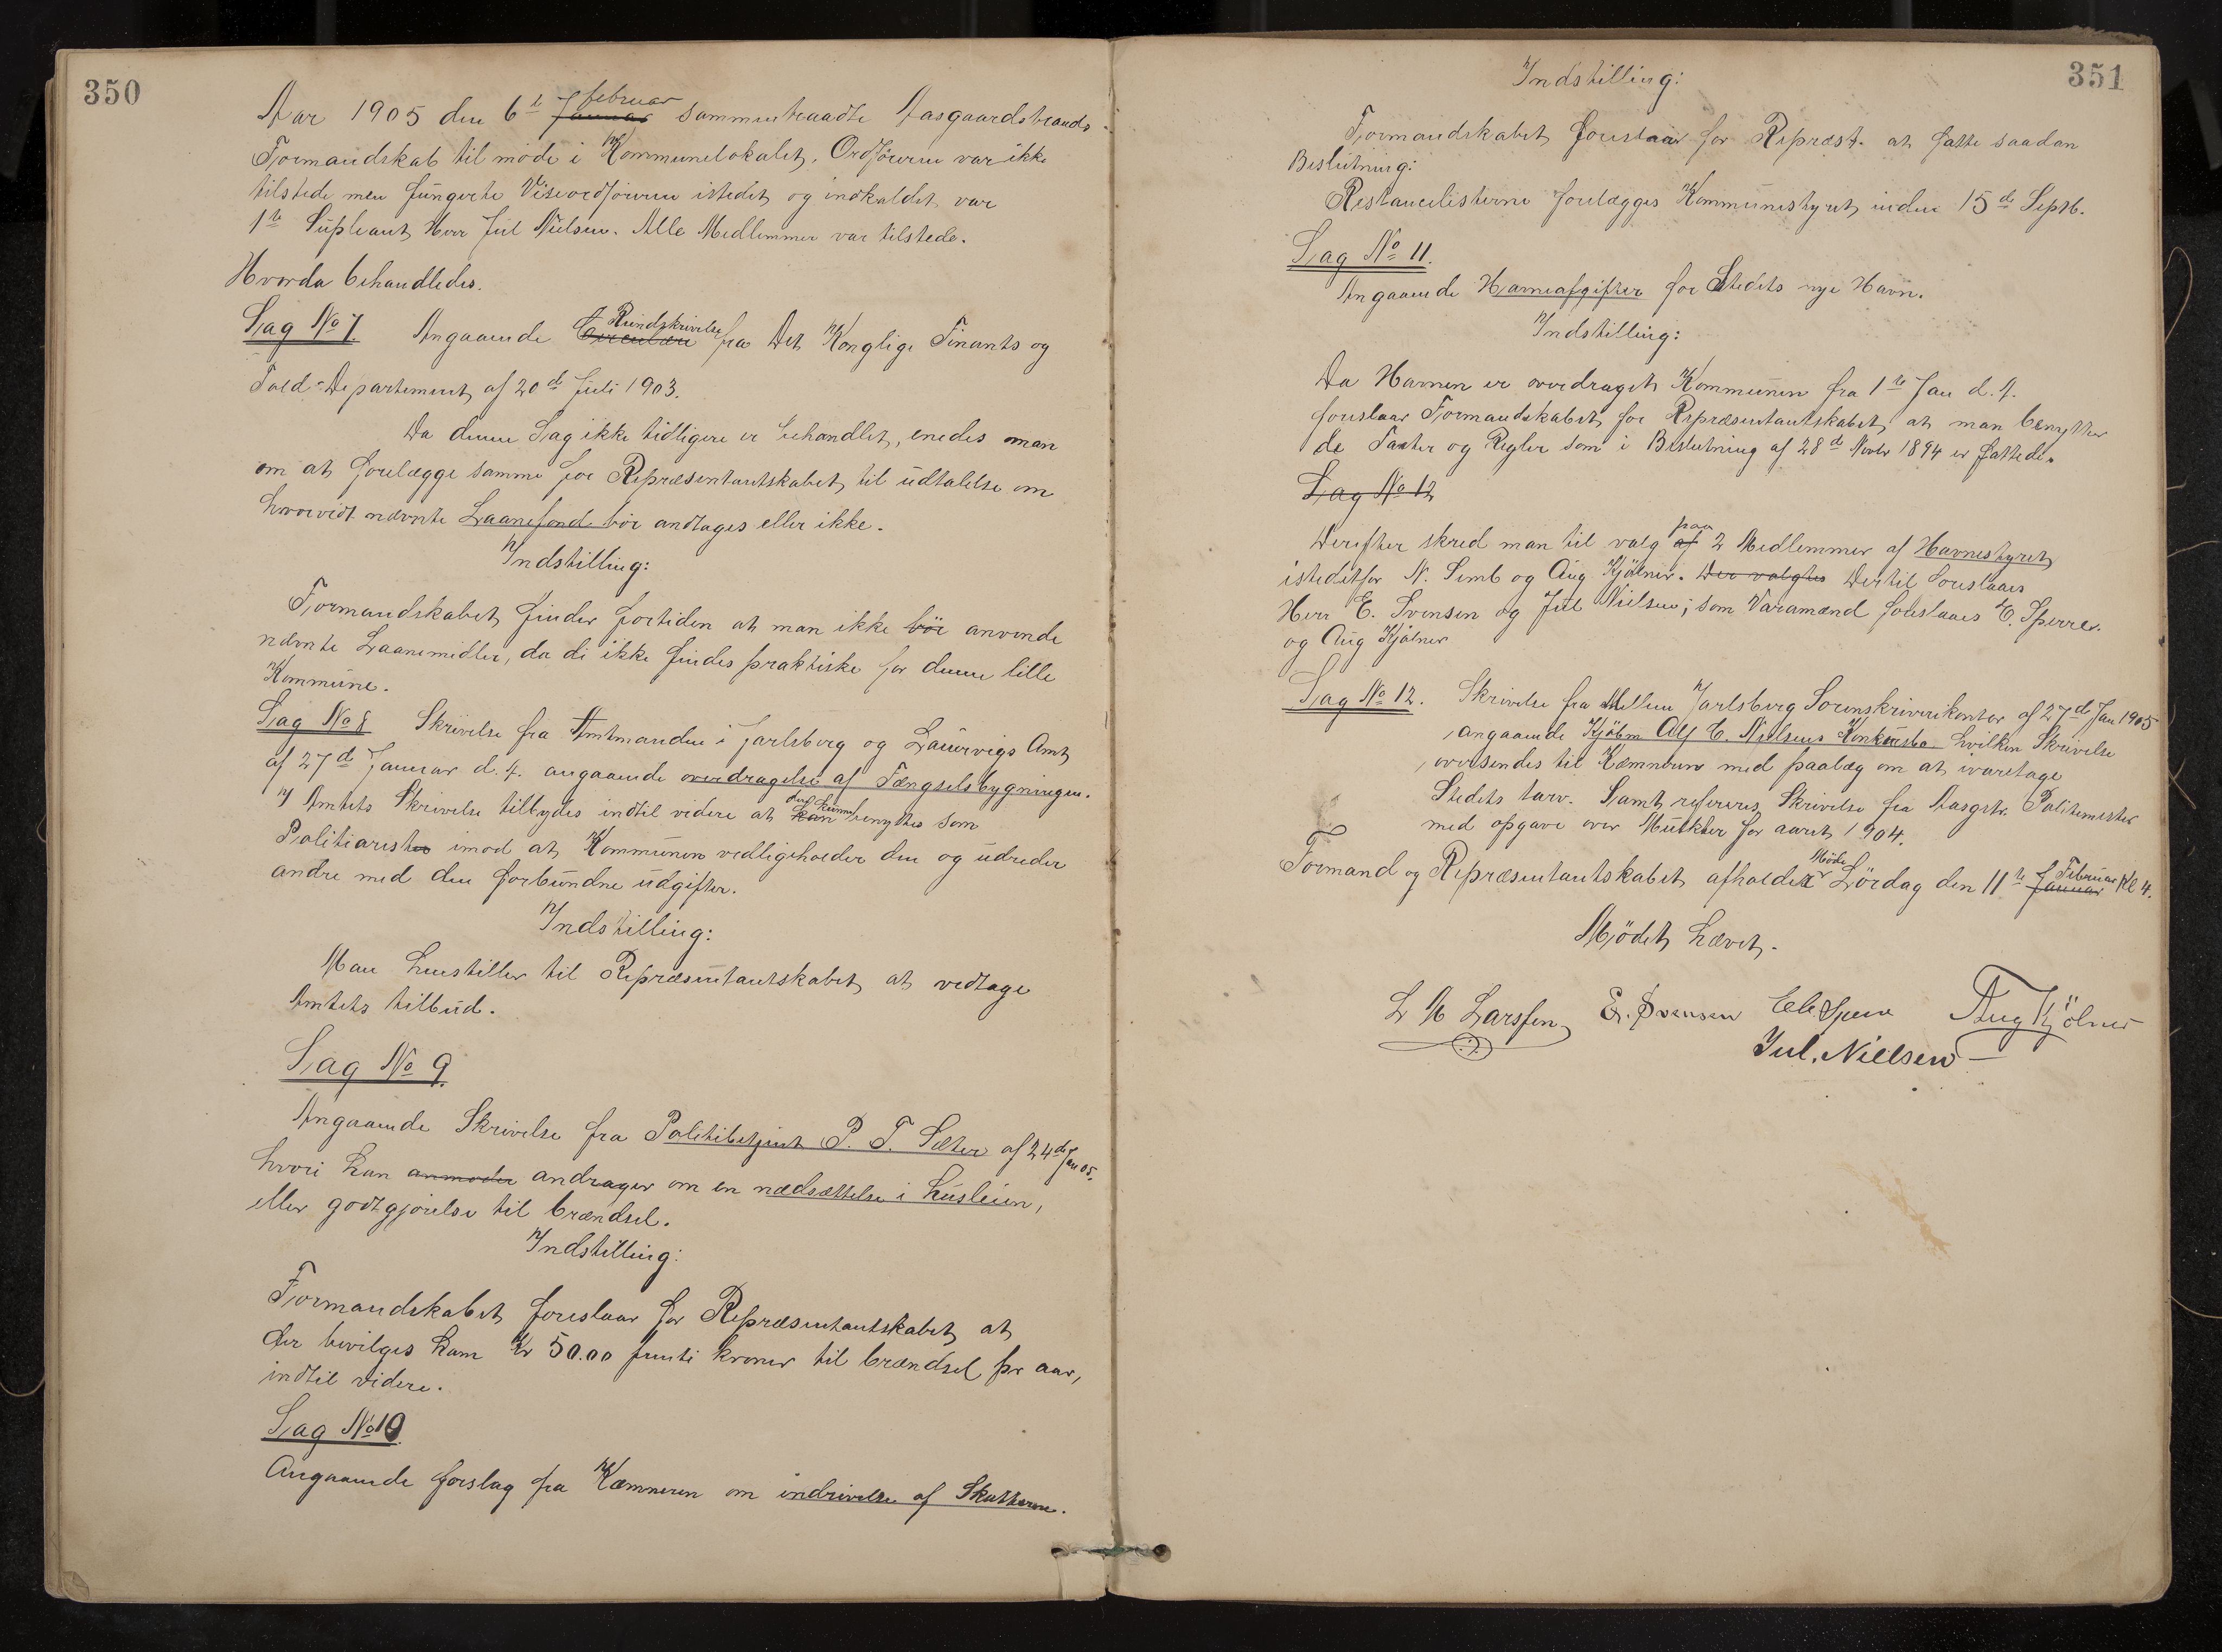 350
Aar 1905 den 6te Januar februar sammentraadte Aasgaardstrands
Formandskab til möde i Kommunelokalet. Ordföreren var ikke
tilstede men fungerte Viseordföreren istedet og indkaldet var
1ste Supleant Herr Jul Nielsen. Alle Medlemmer var tilstede.
Hvorda behandledes.
Sag No 7. Angaaende Circulære Rundskrivelse fra Det Konglige Finants og
Told-Departement af 20de Juli 1903.
Da denne Sag ikke tidligere er behandlet, enedes man
om at forelægge samme for Repræsentantskabet til udtalelse om
hvorvidt nævnte Laanefond bör andtages eller ikke.
Indstilling:
Formandskabet finder fortiden at man ikke bör anvende
nævnte Laanemidler, da di ikke findes praktiske for denne lille
Kommune.
Sag No 8 Skrivelse fra Amtmanden i Jarlsberg og Laurvigs Amt
af 27de Januar d.A. angaaende overdragelse af Fængselsbygningen.
I Amtets Skrivelse tilbydes indtil videre at kan den kunne benyttes som
Politiarest imod at Kommunen vedligeholder den og udreder
andre med den forbundne udgifter.
Indstilling:
Man henstiller til Repræsentantskabet at vedtage
Amtets tilbud.
Sag No 9.
Angaaende Skrivelse fra Politibetjent P. T. Sæter af 24de Jan 05.
hvori han anmoder andrager om en nedsættelse i husleien,
eller godtgjörelse til brændsel.
Indstilling:
Formandskabet foreslaar for Repræsentantskabet at
der bevilges ham Kr 50.00 femti kroner til brændsel pr aar,
indtil videre.
Sag No 10.
Angaaende forslag fra Kæmneren om indrivelse af Skatterne.
351
Indstilling:
Formandskabet foreslaar for Repræst. at fatte saadan
Beslutning:
Restancelisterne forelægges Kommunestyret inden 15de Septb.
Sag No 11.
Angaaende Havneafgifter for Stedets nye Havn.
Indstilling:
Da Havnen er overdraget Kommunen fra 1ste Jan d.A.
foreslaar Formandskabet for Repræsentantskabet at man benytter
de Taxter og Regler som i Beslutning af 28de Novbr 1894 er fattede.
Sag No 12
Derefter skred man til valg af paa 2 Medlemmer af Havnestyret
istedetfor N. Semb og Aug Kjölner. Der valgtes Dertil foreslaaes
Herr E. Svensen og Jul Nielsen; som Varamænd foreslaaes C. Sperre.
og Aug Kjölner
Sag No 12. Skrivelse fra Mellem Jarlsberg Sorenskriverikontor af 27de Jan 1905
angaaende Kjöbm Alf C. Nielsens Konkursbo hvilken Skrivelse
oversendes til Kæmneren med paalæg om at ivaretage
Stedets tarv. Samt refereres Skrivelse fra Aasgstr. Politimester
med opgave over Mulkter for aaret 1904.
Formand og Repræsentantskabet afholder Möde Lördag den 11te Januar Februar Kl 4.
Mödet hævet.
L M Larssen E. Svensen Sperre Aug Kjölner
Jul. Nielsen